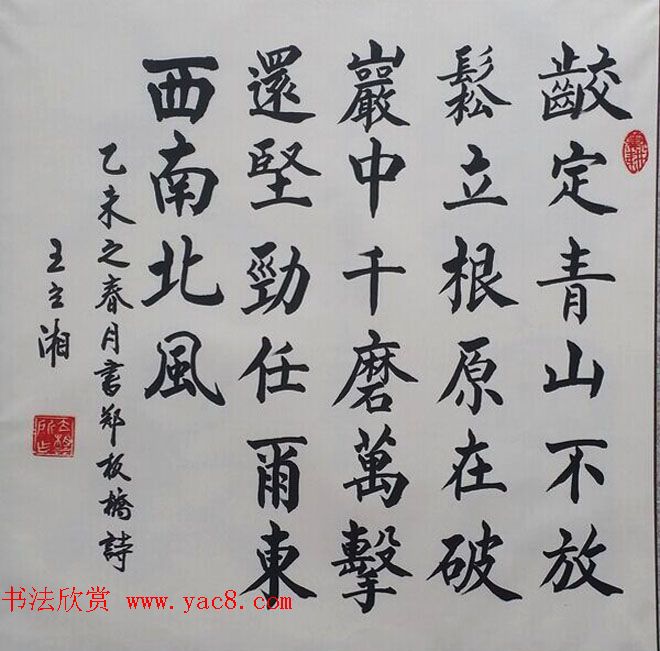 齩定青山不放
鬆立根原在破
巖中千磨萬擊
還堅勁任爾東
西南北風
乙未之春月書郑板橋詩
王立湘
书法欣赏 www.yac8.com